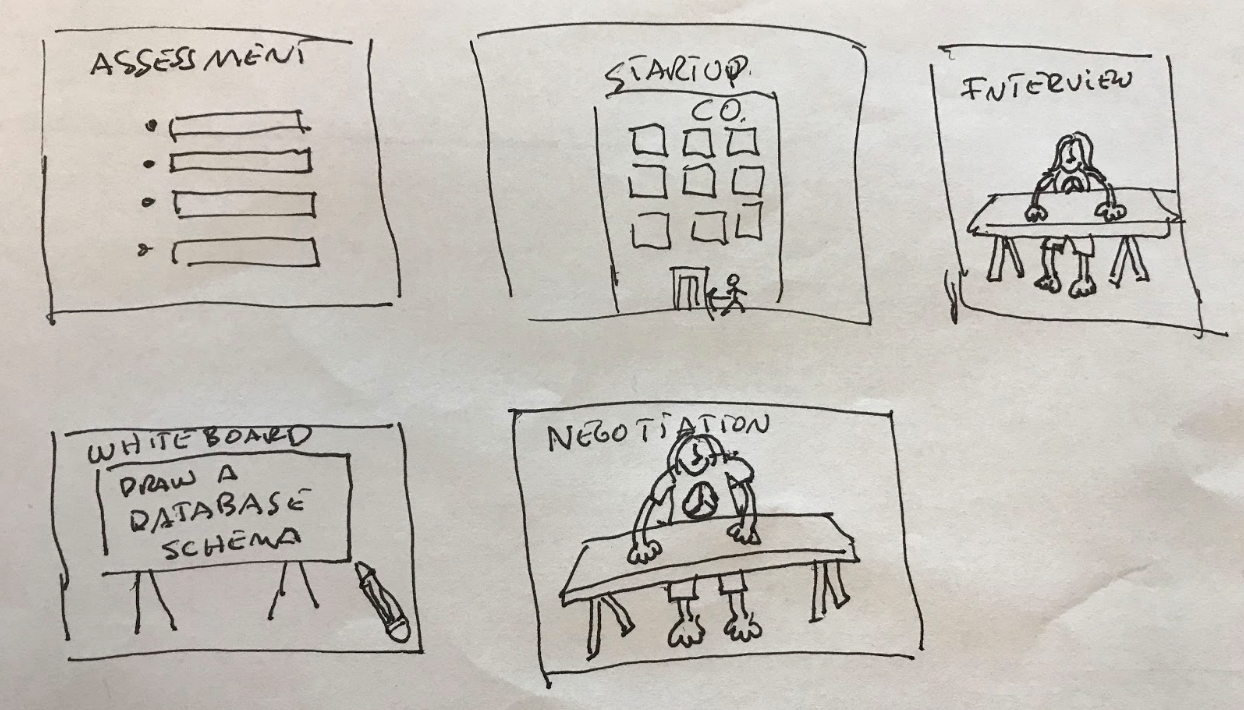 ASSESSMENT
STARTUP
CO.
INTERVIEW
WHITEBOARD
DRAW A
DATABASE
SCHEMA
NEGOTIATION